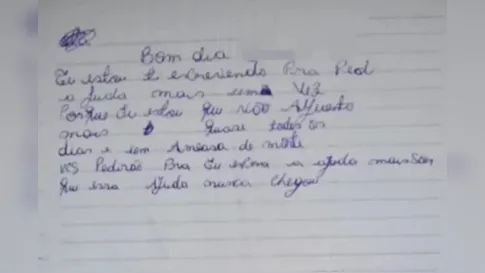 Bom dia
Eu estou te escrevendo Pra Pedi
a Juda mais uma Vez
Porque Eu estou que não Aguento
mais quase todos os
dias e um Ameasa de morte
vcs Pedirão Pra Eu a ajuda mais
que essa Ajuda nunca chegou